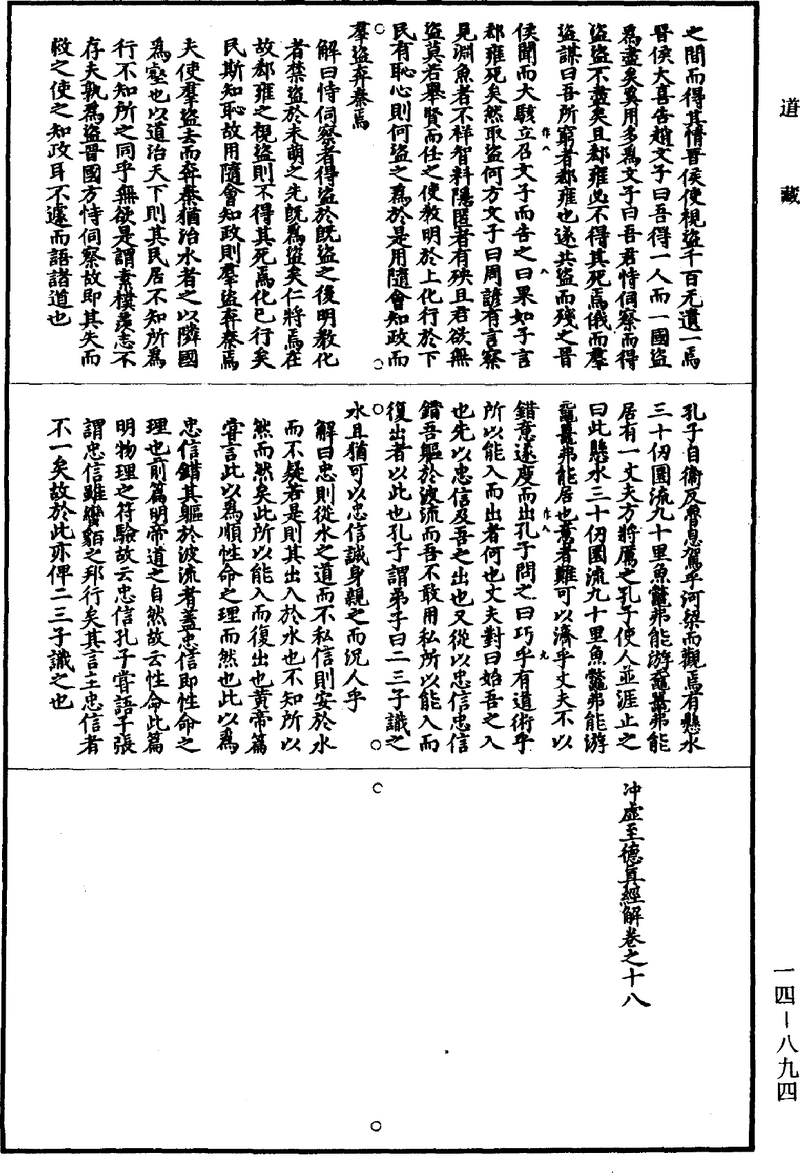 道藏
之間而得其情晉侯使視盜千百无遺一焉
晉侯大喜告趙文子曰吾得一人而一國盜
為盡矣奚用多為文子曰吾君恃伺察而得
盜盜不盡矣且郄雍必不得其死焉俄而羣
盜謀曰吾所窮者郄雍也遂共盜而殘之晉
侯聞而大駭立召文子而告之曰果如子言
郄雍死矣然取盜何方文子曰周諺有言察
見淵魚者不祥智料隱匿者有殃且君欲無
盜莫若舉賢而任之使教明於上化行於下
民有恥心則何盜之為於是用隨會知政而
羣盜奔秦焉
解曰恃伺察者得盜於既盜之後明教化
者禁盜於未萌之先既為盜矣仁將焉在
故郄雍之視盜則不得其死焉化已行矣
民斯知恥故用隨會知政則羣盜奔秦焉
夫使羣盜去而奔秦猶治水者之以隣國
為壑也以道治天下則其民居不知所為
行不知所之同乎無欲是謂素樸愚志不
存夫孰為盜晉國方恃伺察故即其失而
救之使之知政耳不遽而語諸道也
孔子自衛反魯息駕乎河梁而觀焉有懸水
三十仞圜流九十里魚鼈弗能游黿鼉弗能
居有一丈夫方將厲之孔子使人並涯止之
曰此懸水三十仞圜流九十里魚鼈弗能游
黿鼉弗能居也意者難可以濟乎丈夫不以
錯意遂度而出孔子問之曰巧乎有道術乎
所以能入而出者何也丈夫對曰始吾之入
也先以忠信及吾之出也又從以忠信忠信
錯吾軀於波流而吾不敢用私所以能入而
復出者以此也孔子謂弟子曰二三子識之
水且猶可以忠信誠身親之而況人乎
解曰忠則從水之道而不私信則安於水
而不疑若是則其出入於水也不知所以
然而然矣此所以能入而復出也黃帝篇
嘗言此以為順性命之理而然也此以為
忠信錯其軀於波流者蓋忠信即性命之
理也前篇明帝道之自然故云性命此篇
明物理之符驗故云忠信孔子嘗語子張
謂忠信雖蠻貊之邦行矣其言主忠信者
不一矣故於此亦俾二三子識之也
冲虛至德真經解卷之十八
一四－八九四